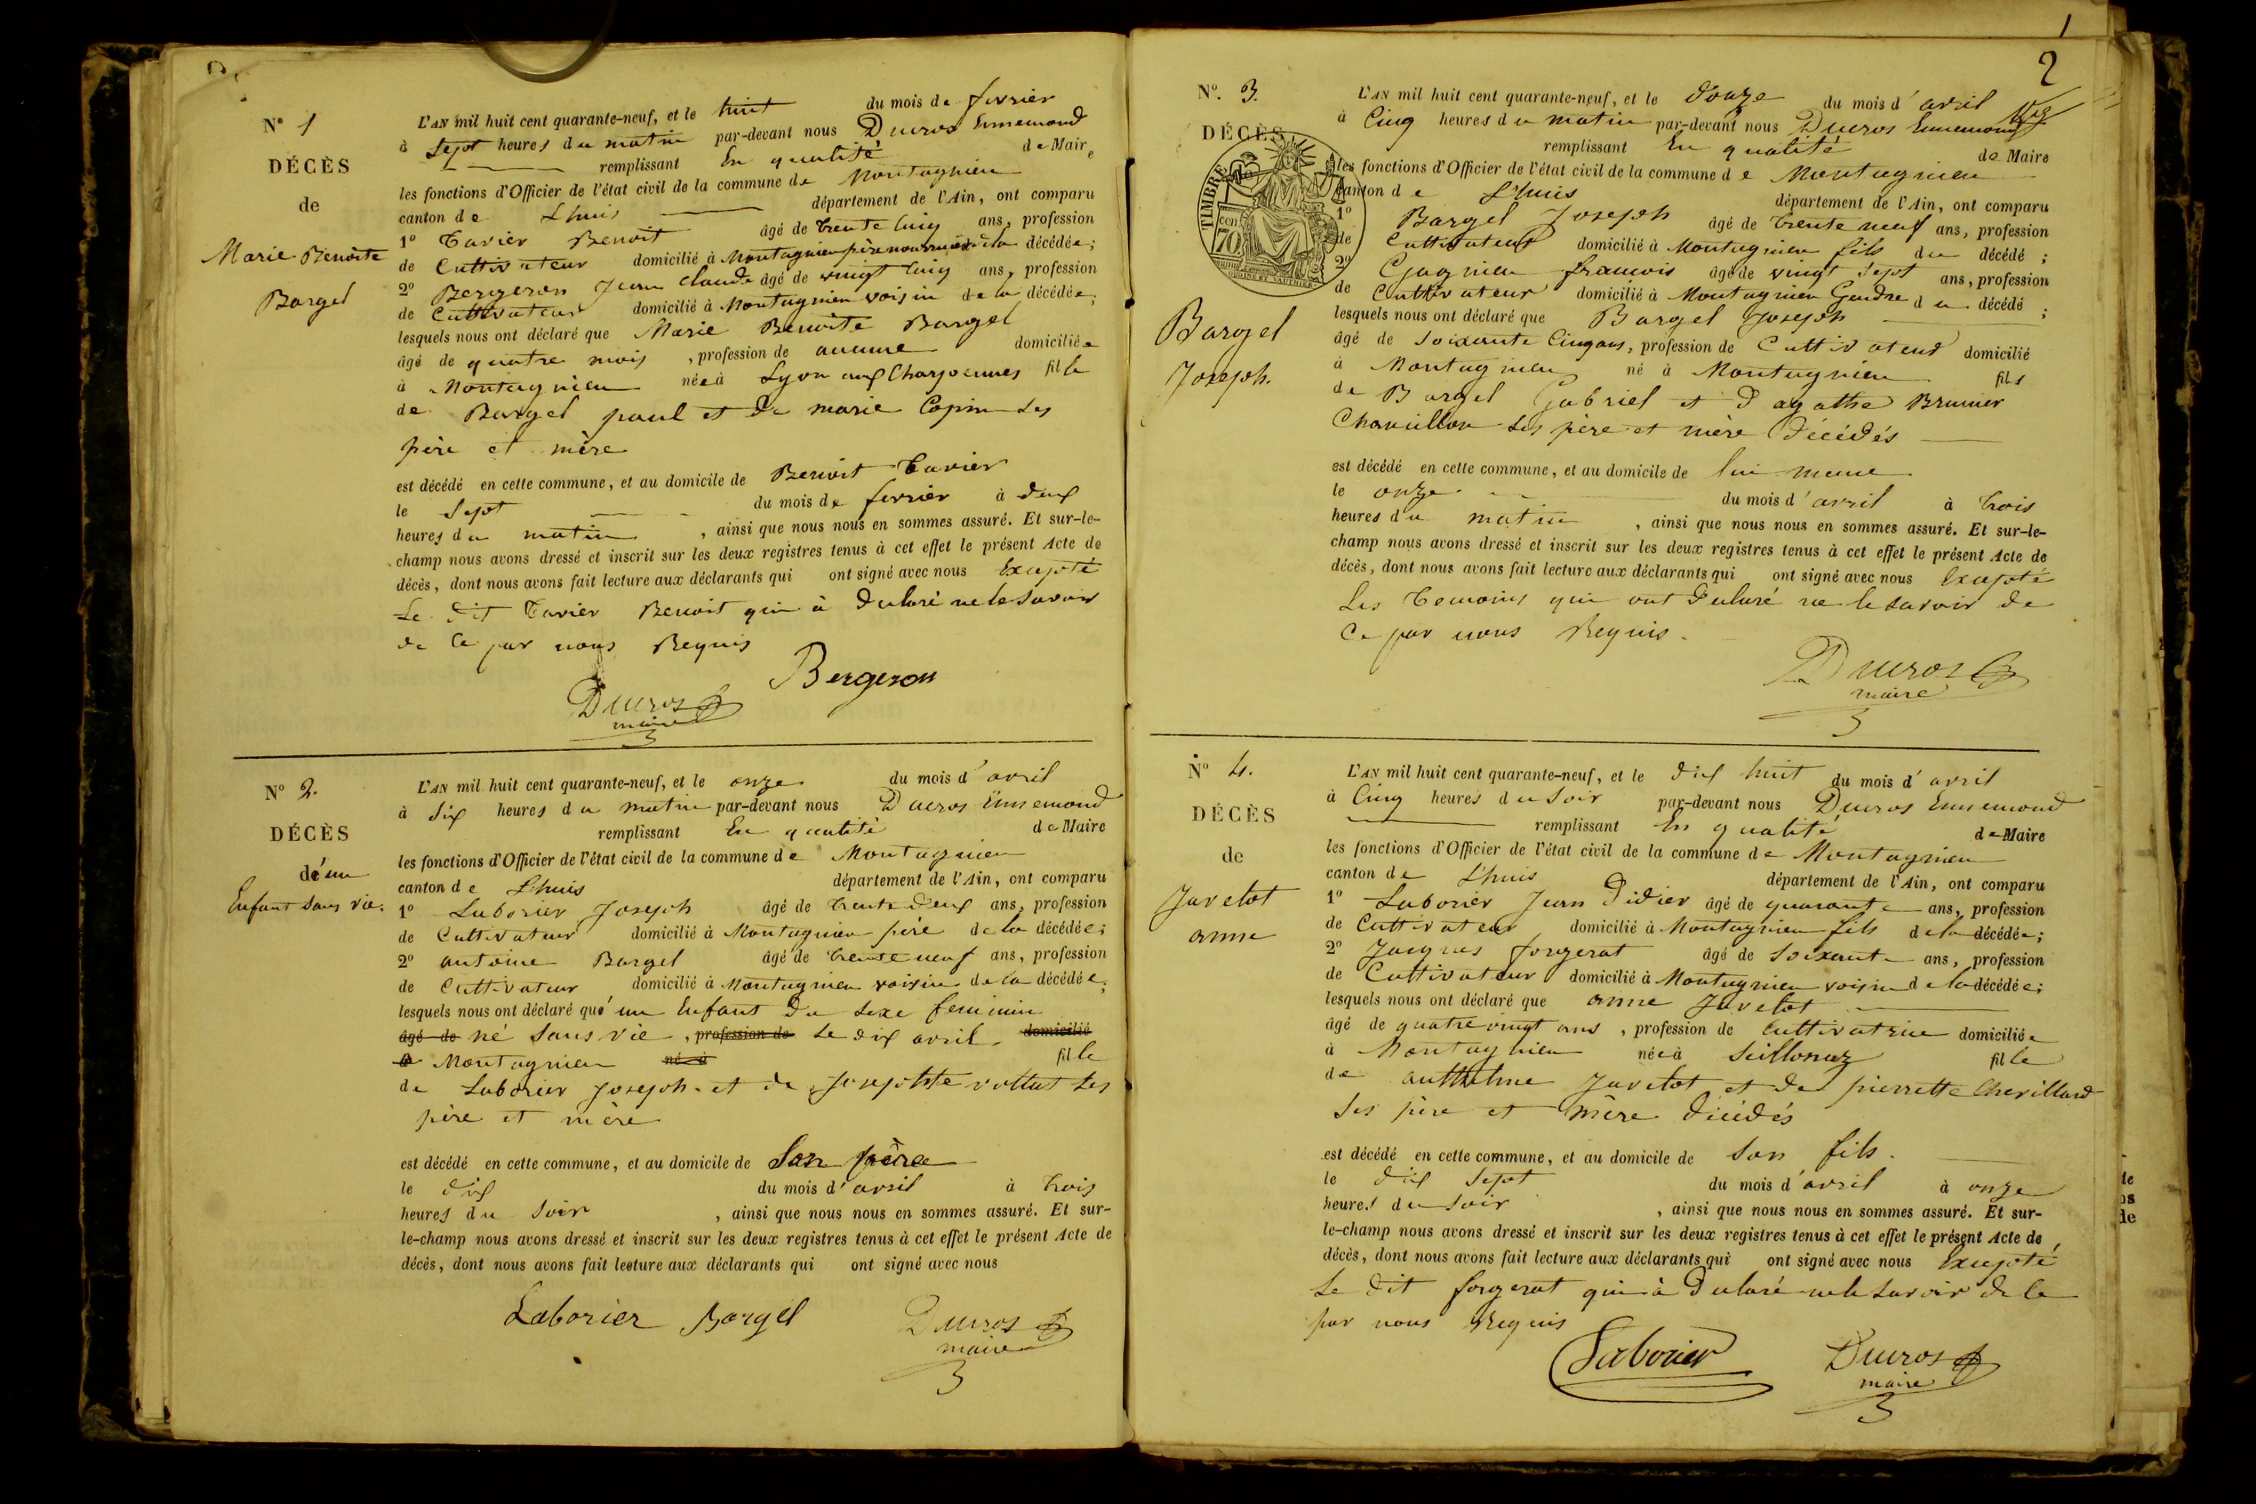 N° 1
DÉCÈS
de
Marie Benoite
Bargel
L'AN mil huit cent quarante-neuf, et le huit du mois de fevrier
à Sept heures du matin par-devant nous Ducros Ennemond
remplissant En qualité de Maire
les fonctions d'Officier de l'état civil de la commune de Montagnieu
canton de Lhuis département de l'Ain, ont comparu
1° Tavier Benoit âgé de trente Cinq ans, profession
de Cultivateur domicilié à Montagnieu père nourricier de la décédée;
2° Bergeron Jean Claude âgé de vingt Cinq ans, profession
de Cultivateur domicilié à Montagnieu voisin de la décédée;
lesquels nous ont déclaré que Marie Benoite Bargel
âgé de quatre mois, profession de aucune domiciliée
à Montagnieu née à Lyon aux Charpennes fille
de Bargel paul et de marie Copin Ses
père et mère
est décédé en cette commune, et au domicile de Benoit Tavier
le Sept du mois de fevrier à deux
heures du matin, ainsi que nous nous en sommes assuré. Et sur-le-
champ nous avons dressé et inscrit sur les deux registres tenus à cet effet le présent Acte de
décès, dont nous avons fait lecture aux déclarants qui ont signé avec nous Excepté
Le dit Tavier Benoit qui à declaré ne le Savoir
de Ce par nous Requis
Bergeron
Ducros
maire
N° 2.
DÉCÈS
d'un
Enfant Sans vie.
L'AN mil huit cent quarante-neuf, et le onze du mois d'avril
à Six heures du matin par-devant nous Ducros Ennemond
remplissant En qualité de Maire
les fonctions d'Officier de l'état civil de la commune de Montagnieu
canton de Lhuis département de l'Ain, ont comparu
1° Laborier Joseph âgé de trente deux ans, profession
de Cultivateur domicilié à Montagnieu père de la décédée;
2° antoine Bargel âgé de trente neuf ans, profession
de Cultivateur domicilié à Montagnieu voisin de la décédée;
lesquels nous ont déclaré qu'un Enfant du Sexe feminin
âgé de né Sans vie, profession de Le dix avril domicilié
à Montagnieu né à fille
de Laborier Joseph et de Josephte vollut Ses
père et mère
est décédé en cette commune, et au domicile de Son père
le dix du mois d'avril à trois
heures du Soir, ainsi que nous nous en sommes assuré. Et sur-
le-champ nous avons dressé et inscrit sur les deux registres tenus à cet effet le présent Acte de
décès, dont nous avons fait lecture aux déclarants qui ont signé avec nous
Laborier Bargel Ducros
maire
1
2
N°. 3.
DÉCÈS
TIMBRE
70
Bargel
Joseph.
L'AN mil huit cent quarante-neuf, et le douze du mois d'avril
à Cinq heures du matin par-devant nous Ducros Ennemond
remplissant En qualité de Maire
les fonctions d'Officier de l'état civil de la commune de Montagnieu
canton de Lhuis département de l'Ain, ont comparu
1° Bargel Joseph âgé de trente neuf ans, profession
de Cultivateur domicilié à Montagnieu fils du décédé;
2° Gagnieu françois âgé de vingt Sept ans, profession
de Cultivateur domicilié à Montagnieu Gendre du décédé;
lesquels nous ont déclaré que Bargel Joseph
âgé de Soixante Cinq ans, profession de Cultivateur domicilié
à Montagnieu né à Montagnieu fils
de Bargel Gabriel et d'agathe Brunier
Chavillon Ses père et mère Décédés
est décédé en cette commune, et au domicile de lui meme
le onze du mois d'avril à trois
heures du matin, ainsi que nous nous en sommes assuré. Et sur-le-
champ nous avons dressé et inscrit sur les deux registres tenus à cet effet le présent Acte de
décès, dont nous avons fait lecture aux déclarants qui ont signé avec nous Excepté
Les temoins qui ont declaré ne le savoir de
Ce par nous Requis.
Ducros
maire
N° 4.
DÉCÈS
de
Juvetot
anne
L'AN mil huit cent quarante-neuf, et le dix huit du mois d'avril
à Cinq heures du Soir par-devant nous Ducros Ennemond
remplissant En qualité de Maire
les fonctions d'Officier de l'état civil de la commune de Montagnieu
canton de Lhuis département de l'Ain, ont comparu
1° Laborier Jean Didier âgé de quarante ans, profession
de Cultivateur domicilié à Montagnieu fils de la décédée;
2° Jacques forgerat âgé de Soixante ans, profession
de Cultivateur domicilié à Montagnieu voisin de la décédée;
lesquels nous ont déclaré que anne Juvetot
âgé de quatre vingt ans, profession de Cultivatrice domiciliée
à Montagnieu née à Seillonnaz fille
de anthelme Juvetot et de pierrette Chevillard
Ses père et mère Décédés
est décédé en cette commune, et au domicile de Son fils.
le dix Sept du mois d'avril à onze
heures du Soir, ainsi que nous nous en sommes assuré. Et sur-
le-champ nous avons dressé et inscrit sur les deux registres tenus à cet effet le présent Acte de
décès, dont nous avons fait lecture aux déclarants qui ont signé avec nous Excepté
Le dit forgerat qui à declaré ne le Savoir de Ce
par nous Requis
Laborier Ducros
maire